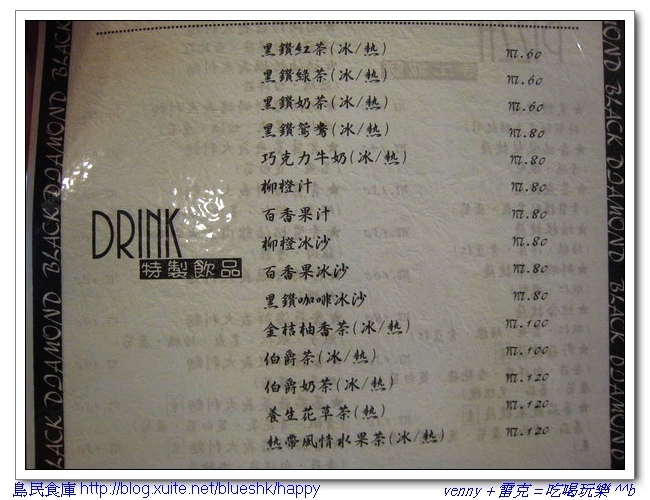 黑鑽紅茶(冰/熱) nt.60
黑鑽綠茶(冰/熱) nt.60
黑鑽奶茶(冰/熱) nt.60
黑鑽鴛鴦(冰/熱) nt.80
巧克力牛奶(冰/熱) nt.80
柳橙汁 nt.80
百香果汁 nt.80
柳橙冰沙 nt.80
百香果冰沙 nt.80
黑鑽咖啡冰沙 nt.80
金桔柚香茶(冰/熱) nt.100
伯爵茶(冰/熱) nt.100
伯爵奶茶(冰/熱) nt.120
養生花草茶(熱) nt.120
熱帶風情水果茶(冰/熱) nt.120
DRINK
特製飲品
BLACK DIAMOND BLACK
BLACK DIAMOND BLACK DIAMOND
島民食庫 http://blog.xuite.net/blueshk/happy
venny + 雷克 = 吃喝玩樂 ^^b